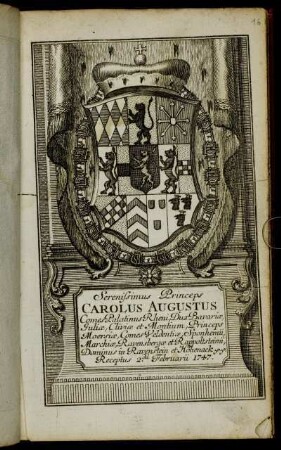 16
Serenissimus Princeps
CAROLUS AUGUSTUS
Comes Palatinus Rheni, Dux Bavariæ,
Juliæ, Cliviæ et Montium, Princeps
Moersiæ, Comes Veldentiæ, Sponhemii,
Marchiæ, Ravensbergæ et Rappoltsteinii,
Dominus in Ravenstein et Hohenack
Receptus Februarii 1747.